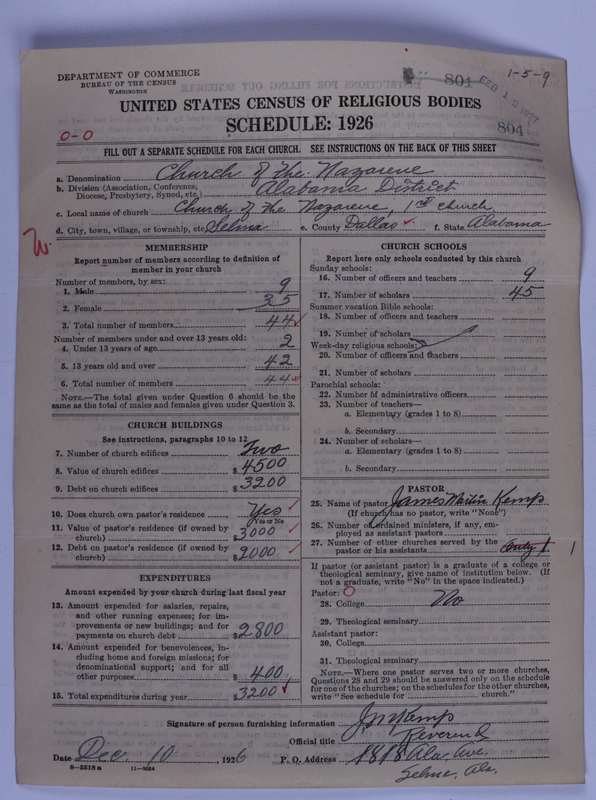 DEPARTMENT OF COMMERCE
BUREAU OF THE CENSUS
WASHINGTON
801
1-5-9
804
UNITED STATES CENSUS OF RELIGIOUS BODIES
SCHEDULE: 1926
0-0
FILL OUT A SEPARATE SCHEDULE FOR EACH CHURCH. SEE INSTRUCTIONS ON THE BACK OF THIS SHEET
a. Denomination Church of the Nazarene
b. Division (Association, Conference, Diocese, Presbytery, Synod, etc.) Alabama District
c. Local name of church Church of the Nazarene, 1st church
d. City, town, village, or township, etc. Selma e. County Dallas f. State Alabama
MEMBERSHIP
Report number of members according to definition of member in your church
Number of members, by sex:
1. Male 9
2. Female 35
3. Total number of members 44
Number of members under and over 13 years old:
4. Under 13 years of age 2
5. 13 years old and over 42
6. Total number of members 44
NOTE.—The total given under Question 6 should be the same as the total of males and females given under Question 3.
CHURCH BUILDINGS
See instructions, paragraphs 10 to 12
7. Number of church edifices Two
8. Value of church edifices $ 4500
9. Debt on church edifices $ 3200
10. Does church own pastor's residence Yes
Yes or No
11. Value of pastor's residence (if owned by church) $ 3000
12. Debt on pastor's residence (if owned by church) $ 2000
EXPENDITURES
Amount expended by your church during last fiscal year
13. Amount expended for salaries, repairs, and other running expenses; for improvements or new buildings; and for payments on church debt $ 2800
14. Amount expended for benevolences, including home and foreign missions; for denominational support; and for all other purposes $ 400
15. Total expenditures during year $ 3200
CHURCH SCHOOLS
Report here only schools conducted by this church
Sunday schools:
16. Number of officers and teachers 9
17. Number of scholars 45
Summer vacation Bible schools:
18. Number of officers and teachers
19. Number of scholars
Week-day religious schools:
20. Number of officers and teachers
21. Number of scholars
Parochial schools:
22. Number of administrative officers
23. Number of teachers—
a. Elementary (grades 1 to 8)
b. Secondary
24. Number of scholars—
a. Elementary (grades 1 to 8)
b. Secondary
PASTOR
25. Name of pastor James Martin Kemp
(If church has no pastor, write "None")
26. Number of ordained ministers, if any, employed as assistant pastors
27. Number of other churches served by the pastor or his assistants only 1. 1
If pastor (or assistant pastor) is a graduate of a college or theological seminary, give name of institution below. (If not a graduate, write "No" in the space indicated.)
Pastor: 0
28. College No
29. Theological seminary
Assistant pastor:
30. College
31. Theological seminary
NOTE.—Where one pastor serves two or more churches, Questions 28 and 29 should be answered only on the schedule for one of the churches; on the schedules for the other churches, write "See schedule for church."
Signature of person furnishing information J M Kemp
Official title Reverend
Date Dec. 10, 1926 P. O. Address 1818 Ala. Ave.
Selma, Ala.
8-5518a 11-9064